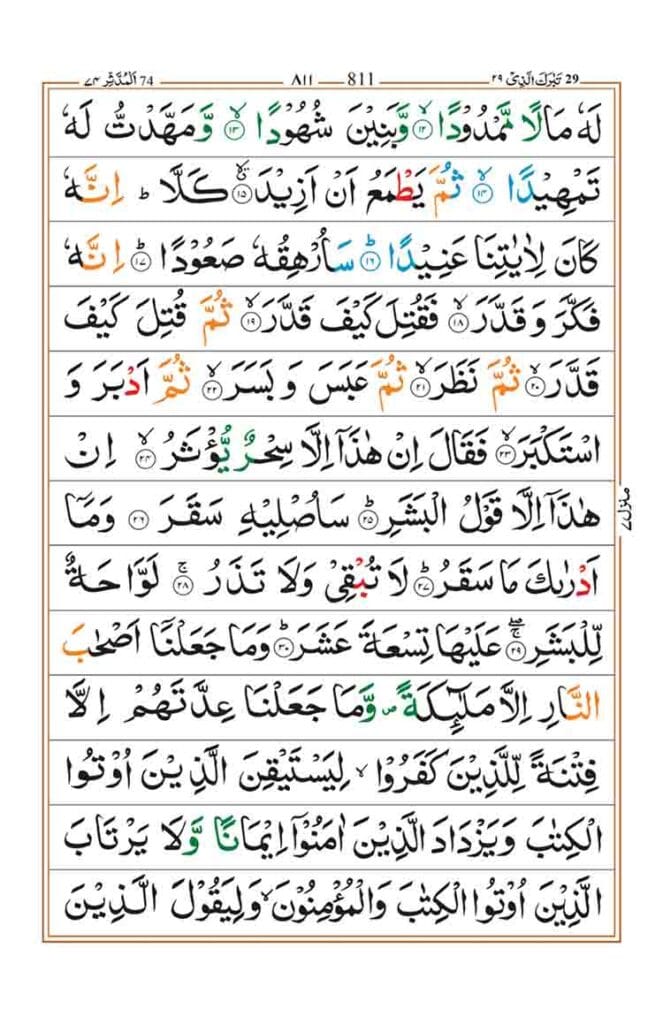 29 تَبٰرَكَ الَّذِیْ ٢٩ 811 ٨١١ 74 اَلْمُدَّثِّر ٧٤
لَهٗ مَالًا مَّمْدُوْدًا ۙ﴿۱۲﴾ وَّبَنِیْنَ شُهُوْدًا ۙ﴿۱۳﴾ وَّ مَهَّدْتُّ لَهٗ
تَمْهِیْدًا ۙ﴿۱۴﴾ ثُمَّ یَطْمَعُ اَنْ اَزِیْدَ ۙ﴿۱۵﴾ كَلَّا ؕ اِنَّهٗ
كَانَ لِاٰیٰتِنَا عَنِیْدًا ؕ﴿۱۶﴾ سَاُرْهِقُهٗ صَعُوْدًا ؕ﴿۱۷﴾ اِنَّهٗ
فَكَّرَ وَ قَدَّرَ ۙ﴿۱۸﴾ فَقُتِلَ كَیْفَ قَدَّرَ ۙ﴿۱۹﴾ ثُمَّ قُتِلَ كَیْفَ
قَدَّرَ ۙ﴿۲۰﴾ ثُمَّ نَظَرَ ۙ﴿۲۱﴾ ثُمَّ عَبَسَ وَ بَسَرَ ۙ﴿۲۲﴾ ثُمَّ اَدْبَرَ وَ
اسْتَكْبَرَ ۙ﴿۲۳﴾ فَقَالَ اِنْ هٰذَاۤ اِلَّا سِحْرٌ یُّؤْثَرُ ۙ﴿۲۴﴾ اِنْ
هٰذَاۤ اِلَّا قَوْلُ الْبَشَرِ ؕ﴿۲۵﴾ سَاُصْلِیْهِ سَقَرَ ﴿۲۶﴾ وَ مَاۤ
اَدْرٰىكَ مَا سَقَرُ ؕ﴿۲۷﴾ لَا تُبْقِیْ وَلَا تَذَرُ ۚ﴿۲۸﴾ لَوَّاحَةٌ
لِّلْبَشَرِ ۚۖ﴿۲۹﴾ عَلَیْهَا تِسْعَةَ عَشَرَ ؕ﴿۳۰﴾ وَمَا جَعَلْنَاۤ اَصْحٰبَ
النَّارِ اِلَّا مَلٰٓىِٕكَةً ۪ وَّمَا جَعَلْنَا عِدَّتَهُمْ اِلَّا
فِتْنَةً لِّلَّذِیْنَ كَفَرُوْا ۙ لِیَسْتَیْقِنَ الَّذِیْنَ اُوْتُوا
الْكِتٰبَ وَیَزْدَادَ الَّذِیْنَ اٰمَنُوْۤا اِیْمَانًا وَّلَا یَرْتَابَ
الَّذِیْنَ اُوْتُوا الْكِتٰبَ وَالْمُؤْمِنُوْنَ ۙ وَلِیَقُوْلَ الَّذِیْنَ
منزل ٧